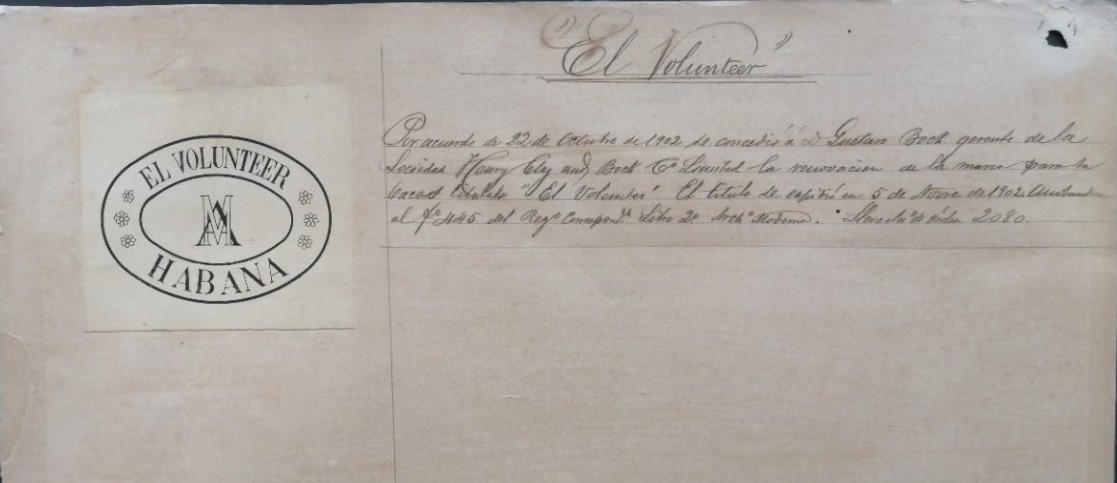 "El Volunteer"
EL VOLUNTEER
HABANA
Por acuerdo de 22 de Octubre de 1902 se concedió á D Gustavo Bock gerente de la
Sociedad Henry Clay and Bock Cº Limited la renovacion de la marca para
tabacos titulada "El Volunteer" El titulo se espidió en 5 de Novre de 1902
al fº 445 del Regº Libro 2º Archº Moderno. 2080.